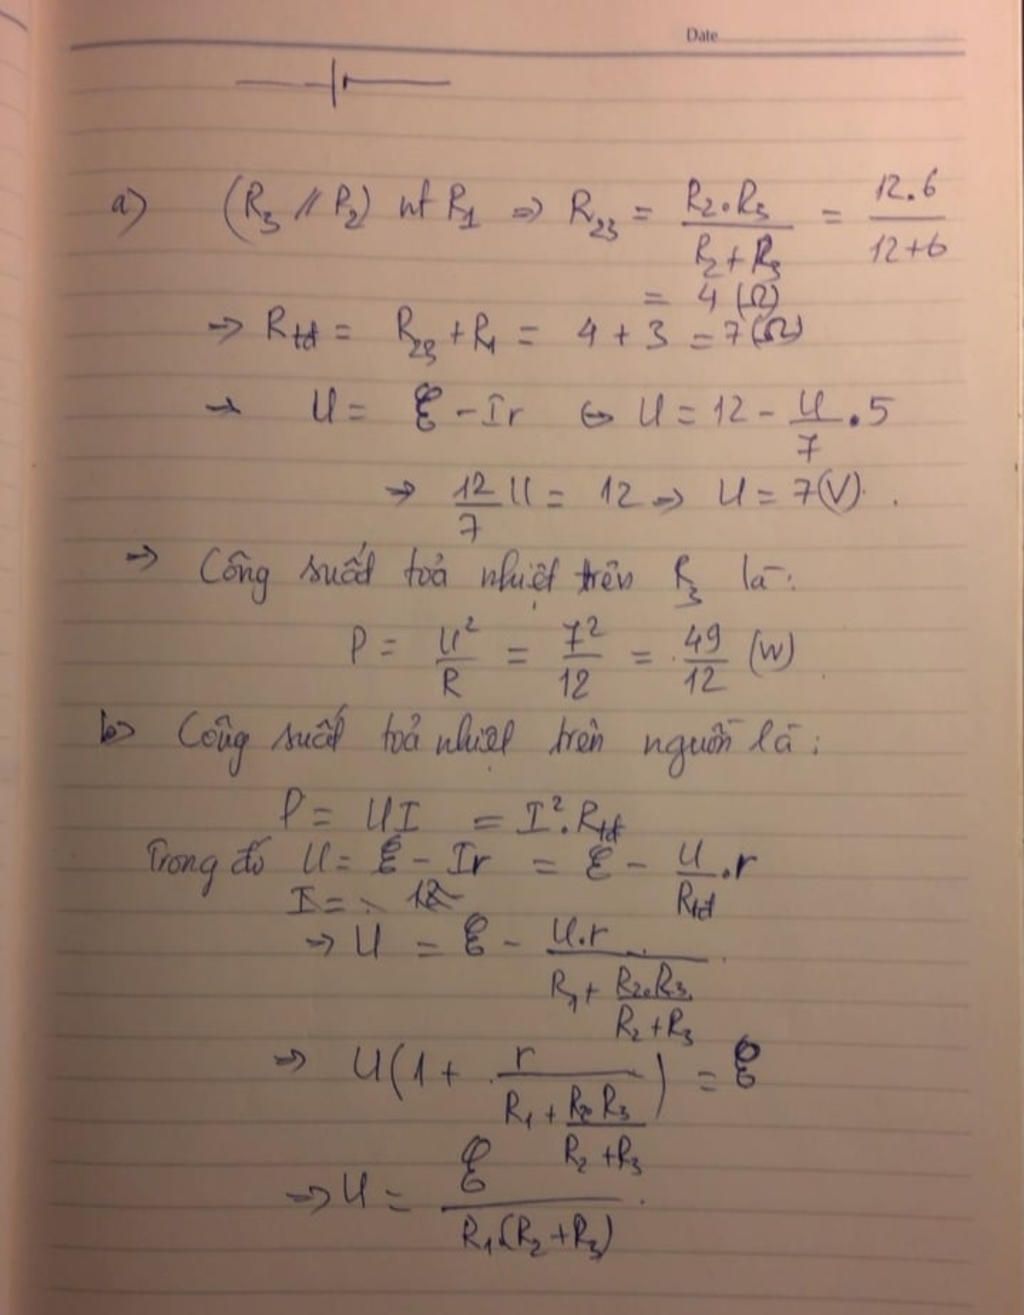 Date
a) (R₃ // R₂) nt R₁ ⇒ R₂₃ = R₂.R₃ / R₂ + R₃ = 12.6 / 12+6
= 4 (Ω)
⇒ Rtđ = R₂₃ + R₁ = 4 + 3 = 7 (Ω)
→ U = ℰ - Ir ⇔ U = 12 - U/7 . 5
⇒ 12/7 U = 12 ⇒ U = 7(V).
⇒ Công suất toả nhiệt trên R₃ là:
P = U²/R = 7²/12 = 49/12 (W)
b) Công suất toả nhiệt trên nguồn là:
P = UI = I².Rtđ
Trong đó U = ℰ - Ir = ℰ - U/Rtđ . r
I = 12
⇒ U = ℰ - U.r / R₁ + R₂.R₃ / R₂ + R₃
⇒ U(1 + r / R₁ + R₂ R₃ / R₂ + R₃) = ℰ
⇒ U = ℰ / R₁.(R₂ + R₃)